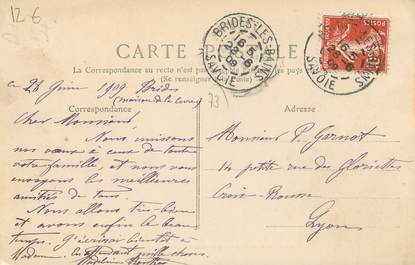 12 €
CARTE POSTALE
La Correspondance au recto n'est pas
(Se renseigner
BRIDES-LES-BAINS
SAVOIE
POSTES
SAVOIE
ce 28 Juin 1909 Brides
(maison de la Cure)
73
Correspondance
Adresse
Cher Monsieur
Nous unissons
nos vœux à ceux de toute
votre famille et nous vous
envoyons les meilleures
amitiés de tous.
Nous allons très bien
et avons enfin le beau
temps. J'écrirai bientôt à
Madame. En attendant mille choses
Monsieur P. Garnot
14 petite rue des Gloriettes
Croix-Rousse
Lyon